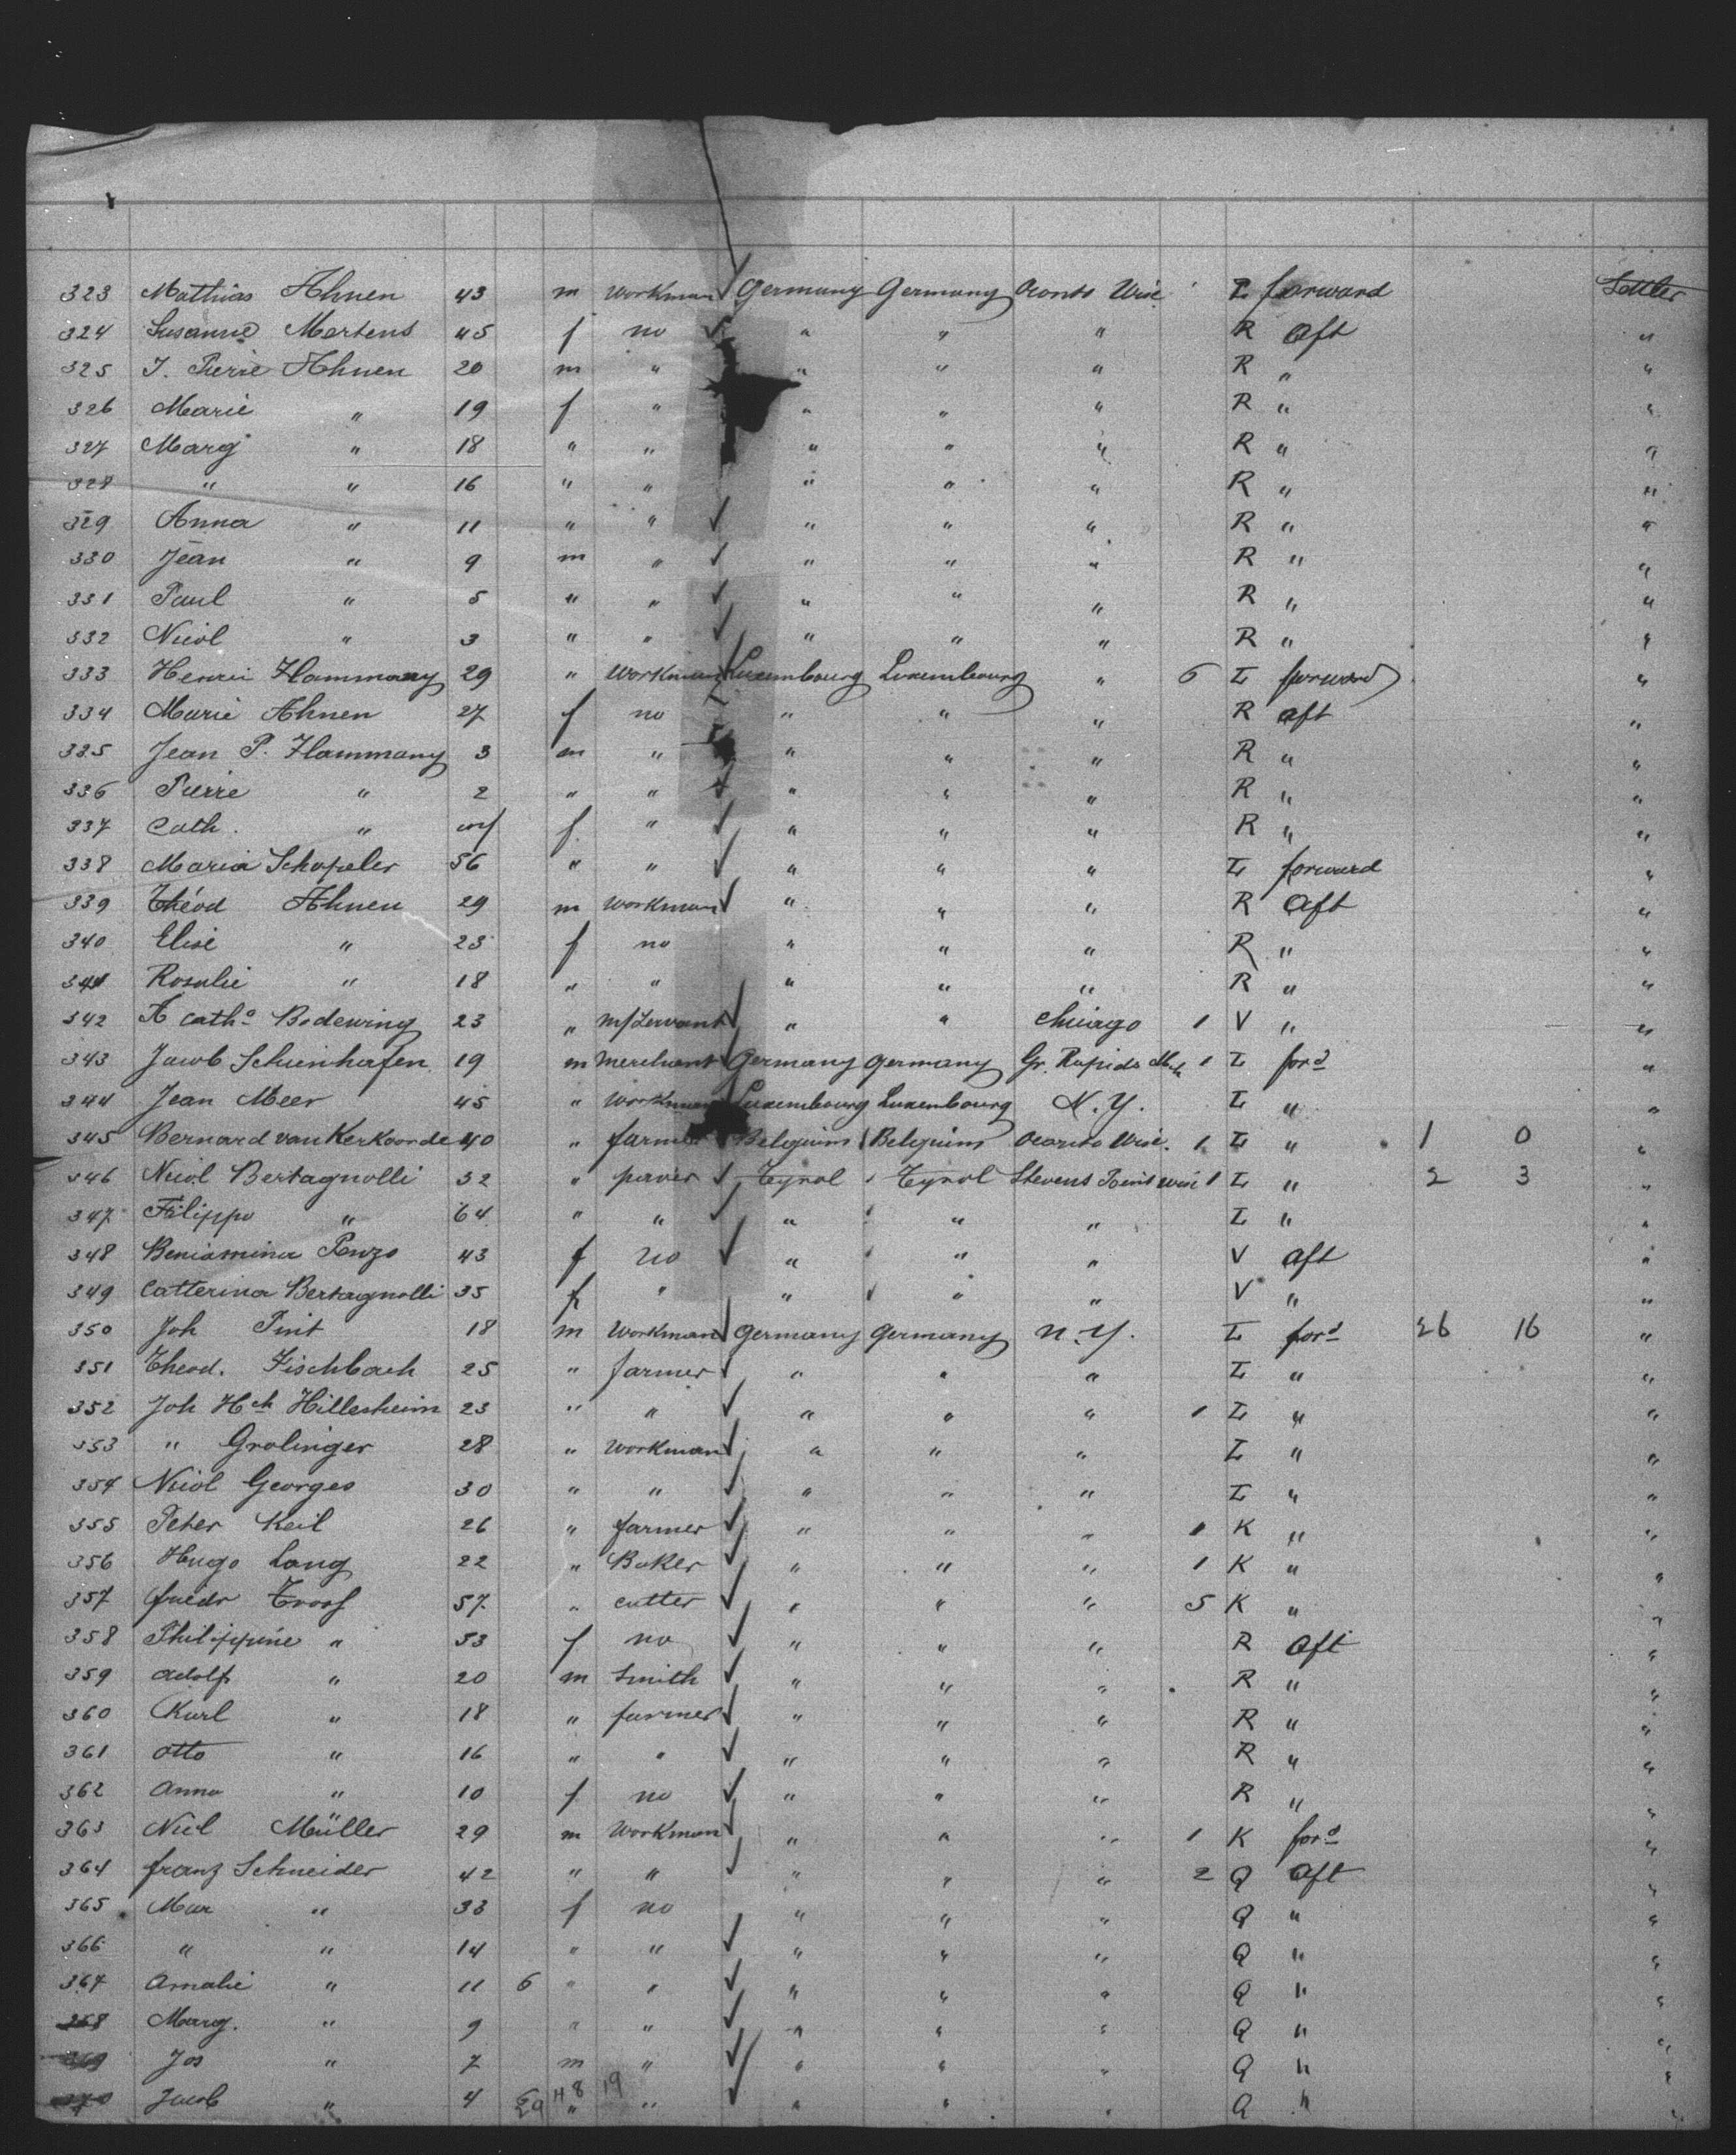 323 Mathias Ahnen 43 m workman Germany Germany Oconto Wisc L forward Settler
324 Susanne Mertens 45 f no " " " R aft "
325 J. Pierre Ahnen 20 m " " " " R " "
326 Marie " 19 f " " " " R " "
327 Marg " 18 " " " " " R " "
328 " " 16 " " " " " R " "
329 Anna " 11 " " " " " R " "
330 Jean " 9 m " " " " R " "
331 Paul " 5 " " " " " R " "
332 Nicol " 3 " " " " " R " "
333 Henri Hammany 29 " workman Luxembourg Luxembourg " 6 L forward "
334 Marie Ahnen 27 f no " " " R aft "
335 Jean P. Hammany 3 m " " " " R " "
336 Pierre " 2 " " " " " R " "
337 Cath. " inf f. " " " " R " "
338 Maria Schapeler 56 " " " " " L forward "
339 Théod Ahnen 29 m workman " " " R Aft "
340 Elise " 23 f no " " " R " "
341 Rosalie " 18 " " " " " R " "
342 A cath° Bodewing 23 " m/servant " " Chicago 1 V " "
343 Jacob Scheinhafen 19 m merchant Germany Germany Gr. Rapids Mich 1 L ford "
344 Jean Meer 45 " workman Luxembourg Luxenbourg N.Y. L " "
345 Bernard van Kerkoorde 40 " farmer Belgium Belgium Oconto Wisc. 1 L " 1 0 "
346 Nicol Bertagnolli 32 " paver Tyrol Tyrol Stevens Point Wisc 1 L " 2 3 "
347 Filippo " 64 " " " " " L " "
348 Beniamina Panzo 43 f no " " " V aft "
349 Catterina Bertagnolli 35 f " " " " V " "
350 Joh Pint 18 m workman Germany Germany N.Y. L ford 26 16 "
351 Theod. Fischbach 25 " farmer " " " L " "
352 Joh Hch Hillesheim 23 " " " " " 1 L " "
353 " Grolinger 28 " workman " " " L " "
354 Nicol Georges 30 " " " " " L " "
355 Peter Keil 26 " farmer " " " 1 K " "
356 Hugo Lang 22 " Baker " " " 1 K " "
357 friedr 57 " cutter " " " 5 K " "
358 Philippine " 53 f no " " " R aft "
359 Adolf " 20 m Smith " " " R " "
360 Karl " 18 " farmer " " " R " "
361 Otto " 16 " " " " " R " "
362 Anna " 10 f no " " " R " "
363 Nicl Müller 29 m workman " " " 1 K ford "
364 franz Schneider 42 " " " " " 2 Q aft "
365 Mar " 33 f no " " " Q " "
366 " " 14 " " " " " Q " "
367 Amalie " 11 6 " " " " " Q " "
368 Marg. " 9 " " " " " Q " "
369 Jos " 7 m " " " " Q " "
370 Jacob " 4 29 48 19 " " " " " Q " "